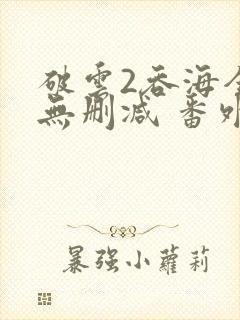 破雲2吞海全
無刪減 番外
暴强小蘿莉